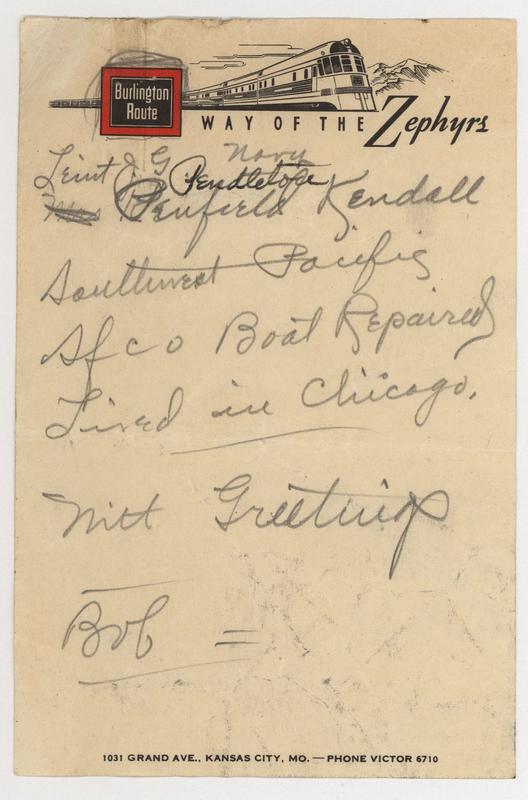 Burlington
Route
WAY OF THE Zephyrs
Leint J. G Navy
Pendletofe
Mrs Penfield Kendall
Southwest Pacific
Sfco Boat Repaired
Lived in Chicago.
Mitt Greetings
Bob =
1031 GRAND AVE., KANSAS CITY, MO. — PHONE VICTOR 6710